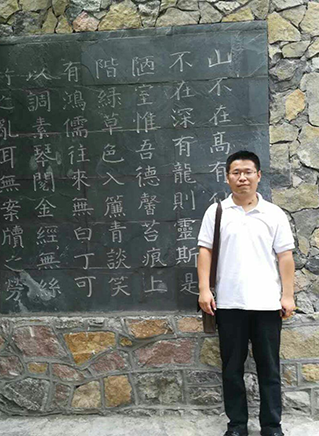 山不在髙有
不在深有龍則靈斯是
陋室惟吾德馨苔痕上
階綠草色入簾青談笑
有鴻儒往來無白丁可
以調素琴閱金經無絲
竹之亂耳無案牘之勞